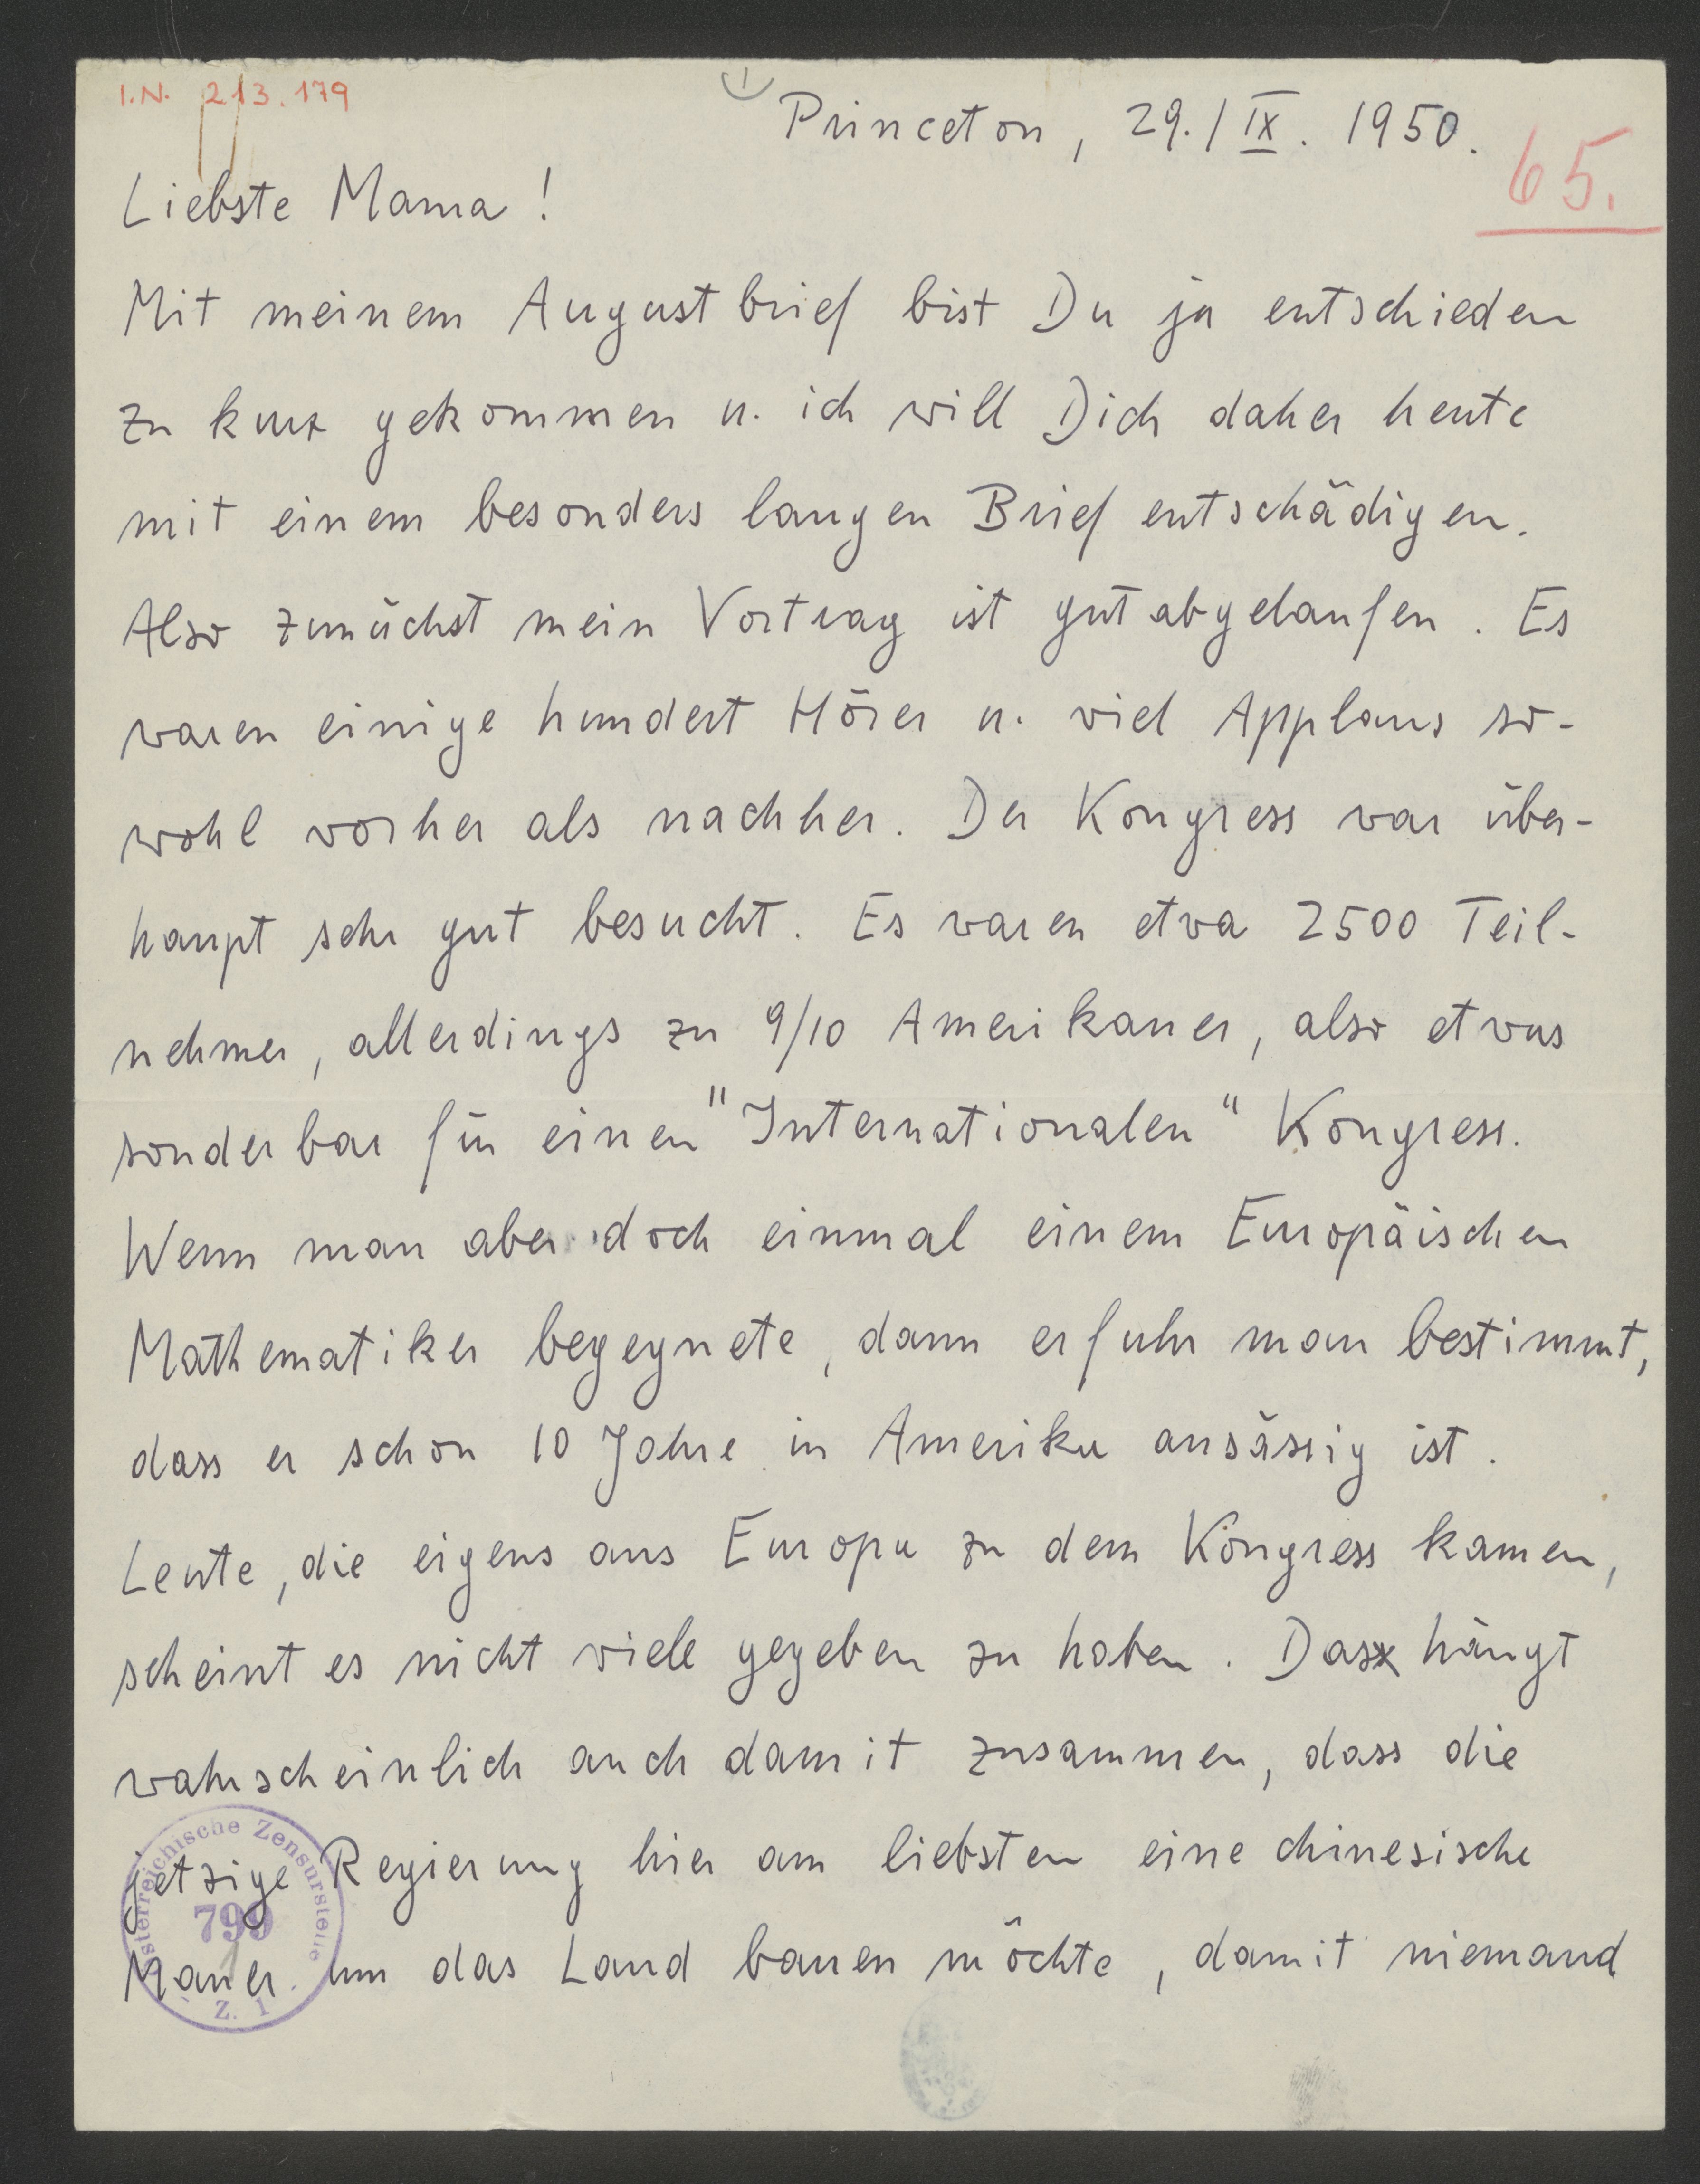 I.N. 213.179
1
Princeton, 29./IX. 1950.
65.
Liebste Mama!
Mit meinem Augustbrief bist Du ja entschieden
zu kurz gekommen u. ich will Dich daher heute
mit einem besonders langen Brief entschädigen.
Also zunächst mein Vortrag ist gut abgelaufen. Es
waren einige hundert Hörer u. viel Applaus so-
wohl vorher als nachher. Der Kongress war über-
haupt sehr gut besucht. Es waren etwa 2500 Teil-
nehmer, allerdings zu 9/10 Amerikaner, also etwas
sonderbar für einen "Internationalen" Kongress.
Wenn man aber doch einmal einem Europäischen
Mathematiker begegnete, dann erfuhr man bestimmt,
dass er schon 10 Jahre in Amerika ansässig ist.
Leute, die eigens aus Europa zu dem Kongress kamen,
scheint es nicht viele gegeben zu haben. Das hängt
wahrscheinlich auch damit zusammen, dass die
jetzige Regierung hier am liebsten eine chinesische
Mauer um das Land bauen möchte, damit niemand
Österreichische Zensurstelle
799
Z. 1